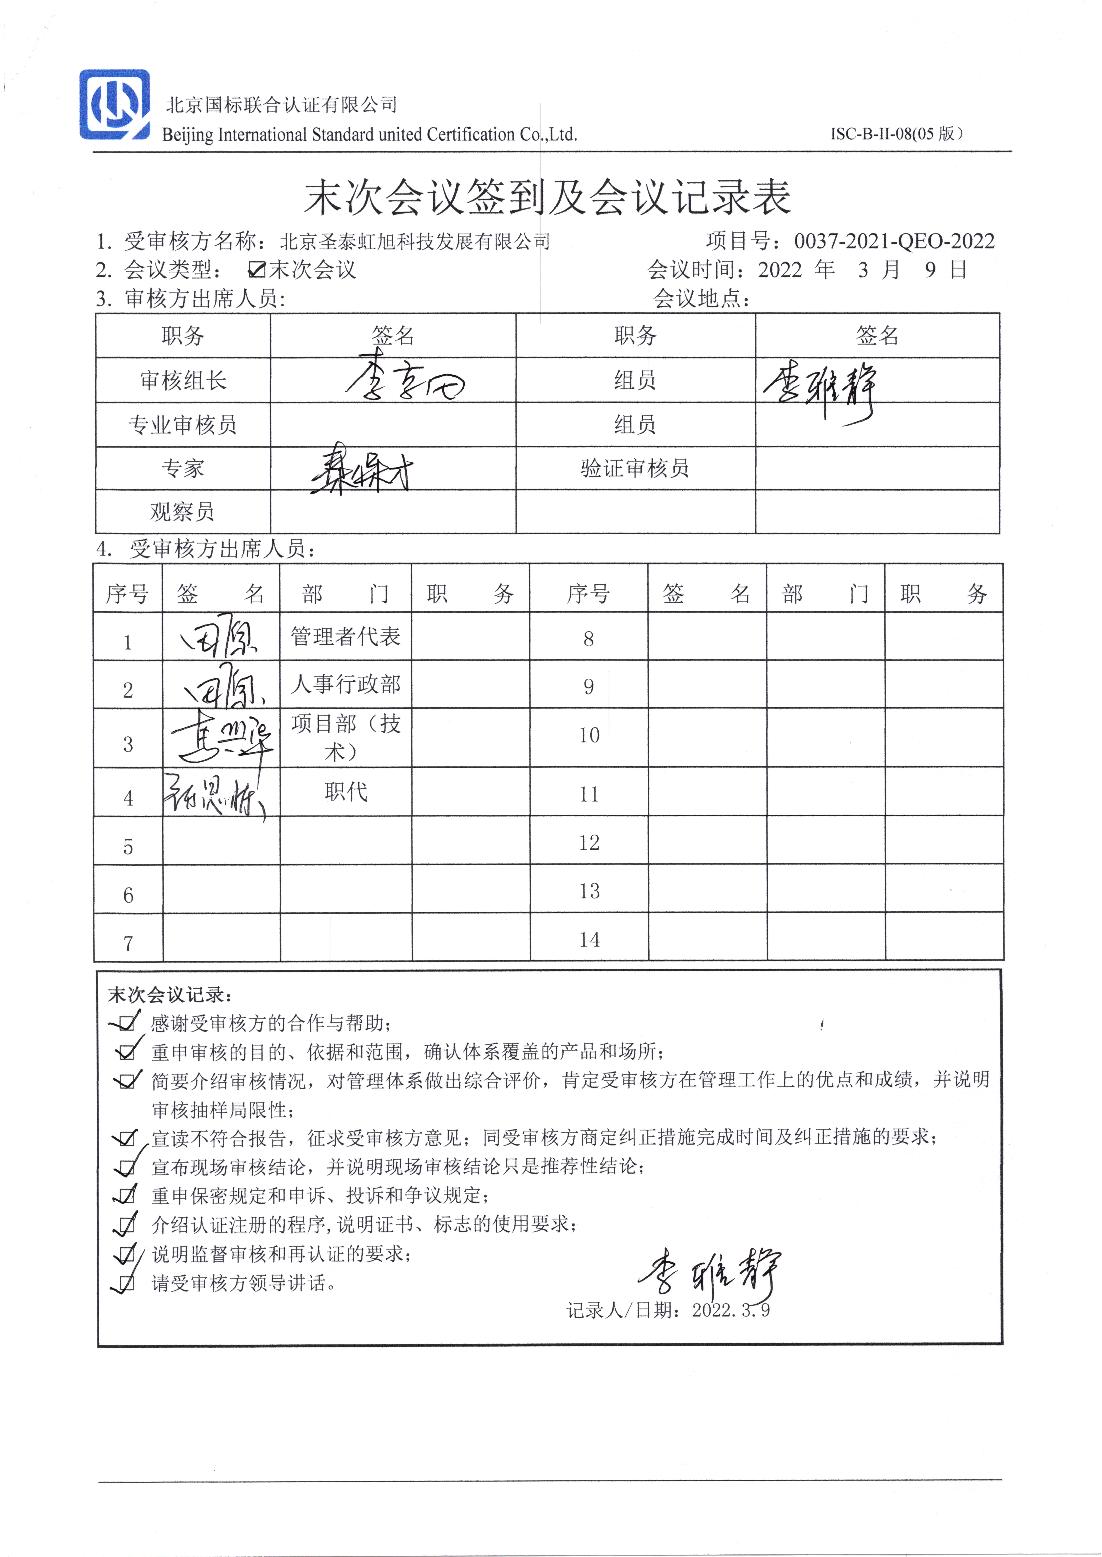 北京国标联合认证有限公司
Beijing International Standard united Certification Co.,Ltd. ISC-B-II-08(05 版)
末次会议签到及会议记录表
1. 受审核方名称：北京圣泰虹旭科技发展有限公司 项目号：0037-2021-QEO-2022
2. 会议类型： ☑末次会议 会议时间：2022 年 3 月 9 日
3. 审核方出席人员： 会议地点：
职务 签名 职务 签名
审核组长 李京田 组员 李雅静
专业审核员 组员
专家 保才 验证审核员
观察员
4. 受审核方出席人员：
序号 签 名 部 门 职 务 序号 签 名 部 门 职 务
1 田原 管理者代表 8
2 田原 人事行政部 9
3 项目部（技术） 10
4 职代 11
5 12
6 13
7 14
末次会议记录：
☑ 感谢受审核方的合作与帮助；
☑ 重申审核的目的、依据和范围，确认体系覆盖的产品和场所；
☑ 简要介绍审核情况，对管理体系做出综合评价，肯定受审核方在管理工作上的优点和成绩，并说明
审核抽样局限性；
☑ 宣读不符合报告，征求受审核方意见；同受审核方商定纠正措施完成时间及纠正措施的要求；
☑ 宣布现场审核结论，并说明现场审核结论只是推荐性结论；
☑ 重申保密规定和申诉、投诉和争议规定；
☑ 介绍认证注册的程序,说明证书、标志的使用要求；
☑ 说明监督审核和再认证的要求；
☑ 请受审核方领导讲话。
李雅静
记录人/日期：2022.3.9